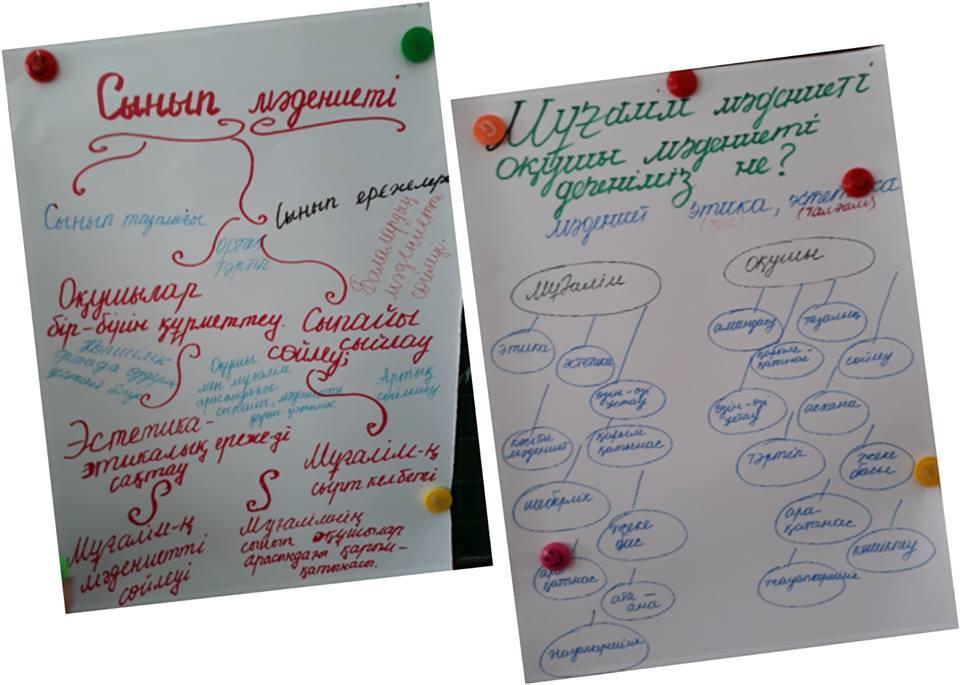 Сынып мәдениеті
Сынып тазалығы
Сынып ережелері
Ортақ
тәртіп
Балалардың
мәдениетті
сөйлеуі.
Оқушылар
бір-бірін құрметтеу.
Сыпайы
сөйлеу,
сыйлау
Көпшілік
ортада өзін
Оқушы
мен мұғалім
арасындағы
сыпайы, мәдениетті
қарым-қатынас
Артық
сөйлемеу
Эстетика-
этикалық ережеді
сақтау
Мұғалім-ң
сырт келбеті
Мұғалім-ң
мәдениетті
сөйлеуі
Мұғалімнің
сынып оқушылар
арасындағы қарым-
қатынасы.
Мұғалім мәдениеті
оқушы мәдениеті
дегеніміз не?
мәдениет этика, эстетика
(талғам)
Мұғалім
этика
эстетика
өзін-өзі
ұстау
кәсіби
мәдениет
қарым
қатынас
шеберлік
жеке
бас
ара
қатнас
ата-
ана
жауапкершілік
Оқушы
амандасу
тазалық
қарым-
қатынас
сөйлеу
өзін-өзі
ұстау
асхана
тәртіп
жеке
басы
ара
қатанас
киініп
жауапкершілік